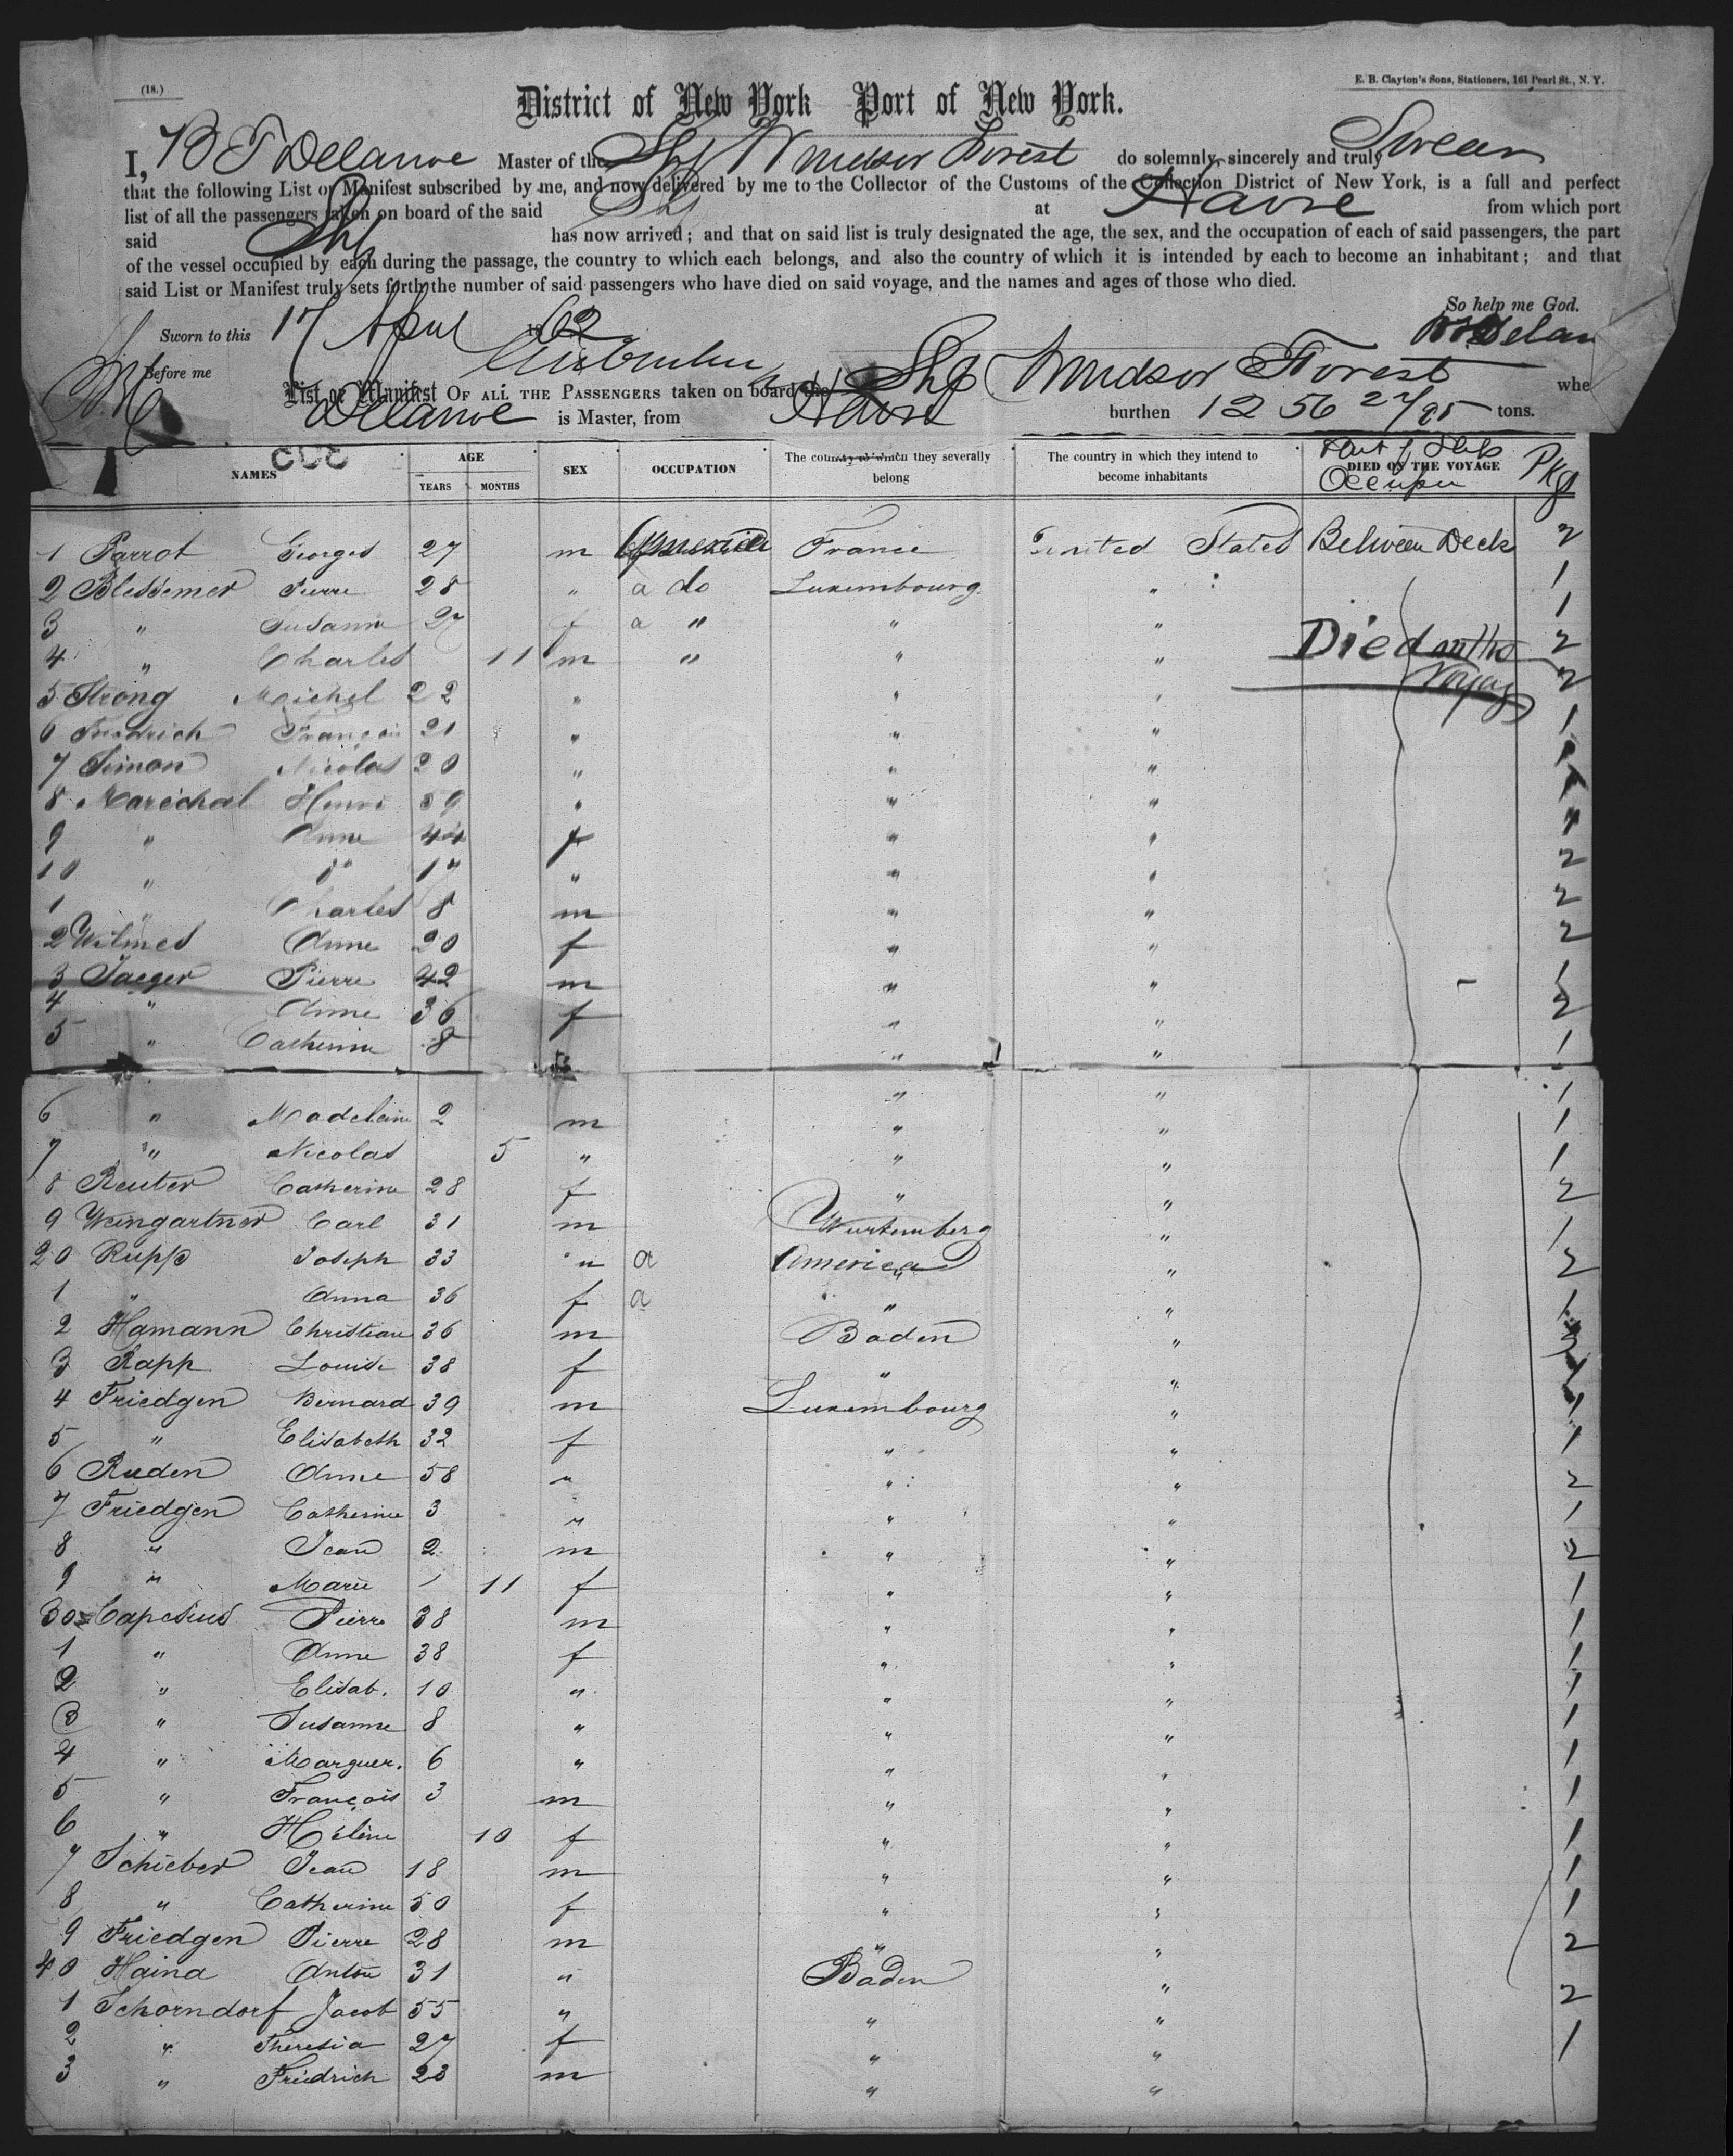 (18.)
E. B. Clayton's Sons, Stationers, 161 Pearl St., N. Y.
District of New York Port of New York.
I, B F Delanoe Master of the Shp Windsor Forest do solemnly, sincerely and truly Swear
that the following List or Manifest subscribed by me, and now delivered by me to the Collector of the Customs of the Collection District of New York, is a full and perfect
list of all the passengers taken on board of the said Shp at Havre from which port
said Shp has now arrived; and that on said list is truly designated the age, the sex, and the occupation of each of said passengers, the part
of the vessel occupied by each during the passage, the country to which each belongs, and also the country of which it is intended by each to become an inhabitant; and that
said List or Manifest truly sets forth the number of said passengers who have died on said voyage, and the names and ages of those who died.
So help me God.
Sworn to this 17 April 1862
Before me
List or Manifest OF ALL THE PASSENGERS taken on board the Shp Windsor Forest whe
Delanoe is Master, from Havre burthen 1256 27/95 tons.
NAMES AGE YEARS MONTHS SEX OCCUPATION The country to which they severally belong The country in which they intend to become inhabitants DIED ON THE VOYAGE Part of Ship Occupied Pkgs
1 Parrot Georges 27 m France United States Between Deck 2
2 Blessemer Pierre 28 " a do Luxembourg " 1
3 " Susanne 27 f a " " " 1
4 " Charles 11 m " " " Died on the Voyage 2
5 Strong Michel 22 " " " 2
6 Friedrich François 21 " " " 1
7 Simon Nicolas 20 " " " 1
8 Maréchal Henri 59 " " "
9 " Anne 44 f " "
10 " " " " 2
1 " Charles 8 m " " 2
2 Wilmes Anne 20 f " " 2
3 Jaeger Pierre 42 m " " 1
4 " Anne 36 f " " 2
5 " Catherine 8 " " 1
6 " Madelaine 2 m " " 1
7 " Nicolas 5 " " " 1
8 Reuter Catherine 28 f " " 2
9 Weingartner Carl 31 m Wurtemberg " 1
20 Rupp Joseph 33 " a America " 2
1 " Anna 36 f a " " 1
2 Hamann Christian 36 m Baden " 3
3 Rapp Louise 38 f " " 1
4 Friedgen Bernard 39 m Luxembourg " 1
5 " Elisabeth 32 f " " 1
6 Ruden Anne 58 " " " 2
7 Friedgen Catherine 3 " " " 1
8 " Jean 2 m " " 2
9 " Marie 1 11 f " " 1
30 Capesius Pierre 38 m " " 1
1 " Anne 38 f " " 1
2 " Elisab. 10 " " " 1
3 " Susanne 8 " " " 1
4 " Marguer. 6 " " " 1
5 " François 3 m " " 1
6 " Hélène 10 f " " 1
7 Schieber Jean 18 m " " 1
8 " Catherine 50 f " " 1
9 Friedgen Pierre 28 m " " 2
40 Haina Anton 31 " Baden "
1 Schorndorf Jacob 55 " " " 2
2 " Theresia 27 f " " 1
3 " Friedrich 23 m " "